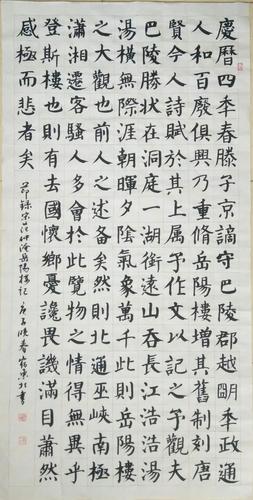 慶曆四秊春滕子京謫守巴陵郡越朙秊政通
人和百廢俱興乃重修岳陽樓增其舊制刻唐
賢今人詩賦於其上属予作文以記之予觀夫
巴陵勝狀在洞庭一湖銜遠山吞長江浩浩湯
湯橫無際涯朝暉夕陰氣象萬千此則岳陽樓
之大觀也前人之述备矣然則北通巫峽南極
瀟湘遷客騷人多會於此覽物之情得無異乎
登斯樓也則有去國懷鄉憂讒畏譏滿目蕭然
感極而悲者矣
節錄宋范仲淹岳陽樓記 庚子 春 書